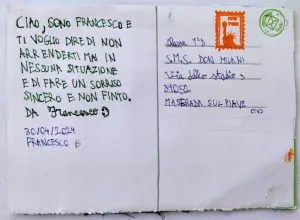 CIAO, SONO FRANCESCO E
TI VOGLIO DIRE DI NON
ARRENDERTI MAI IN
NESSUNA SITUAZIONE
E DI FARE UN SORRISO
SINCERO E NON FINTO.
DA Francesco :)
30/04/2024
FRANCESCO B
Classe 1°D
S.M.S. DON MILANI
Via dello studio 3
31052
MASERADA SUL PIAVE